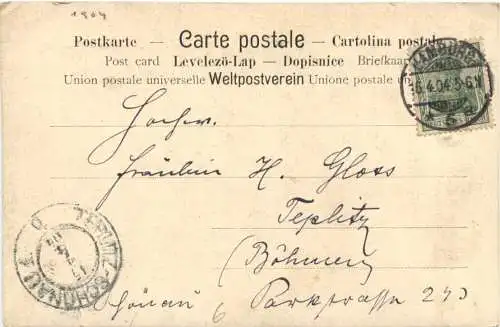 1904
Postkarte — Carte postale — Cartolina postal
Post card — Levelezö-Lap — Dopisnice — Briefkaar
Union postale universelle Weltpostverein Unione postale u
HAMBURG
6.4.04.5-6N
Hochw.
Fräulein H. Gloss
Teplitz
(Böhmen)
Schönau Parkstrasse
TEPLITZ-SCHÖNAU